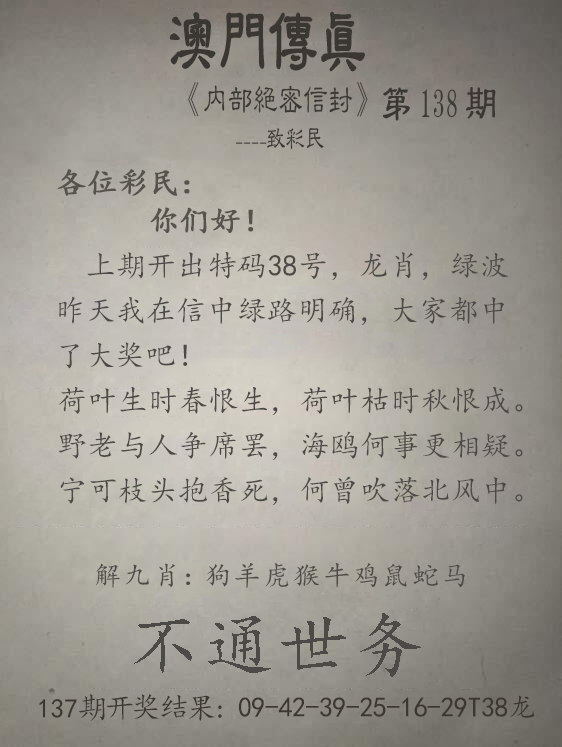 澳門傳眞
《内部絕密信封》第138期
----致彩民
各位彩民：
你们好！
上期开出特码38号，龙肖，绿波
昨天我在信中绿路明确，大家都中
了大奖吧！
荷叶生时春恨生，荷叶枯时秋恨成。
野老与人争席罢，海鸥何事更相疑。
宁可枝头抱香死，何曾吹落北风中。
解九肖：狗羊虎猴牛鸡鼠蛇马
不通世务
137期开奖结果：09-42-39-25-16-29T38龙